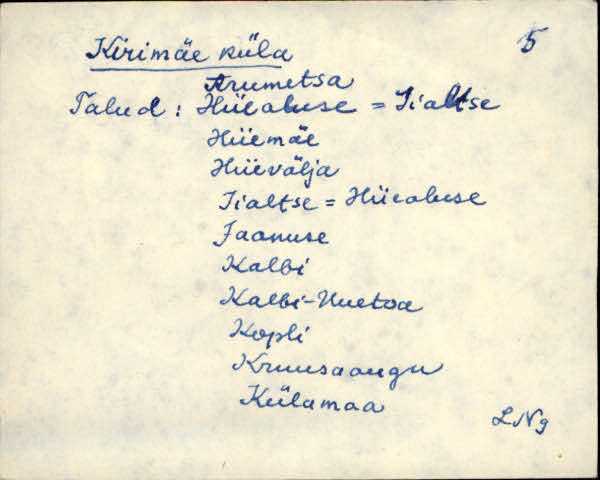 Kirimäe küla 5
Arumetsa
Talud: Hüealuse = Iialtse
Hüemäe
Hüevälja
Iialtse = Hüealuse
Jaanuse
Kalbi
Kalbi-Uuetoa
Kopli
Kruusaaugu
Külamaa
LNg